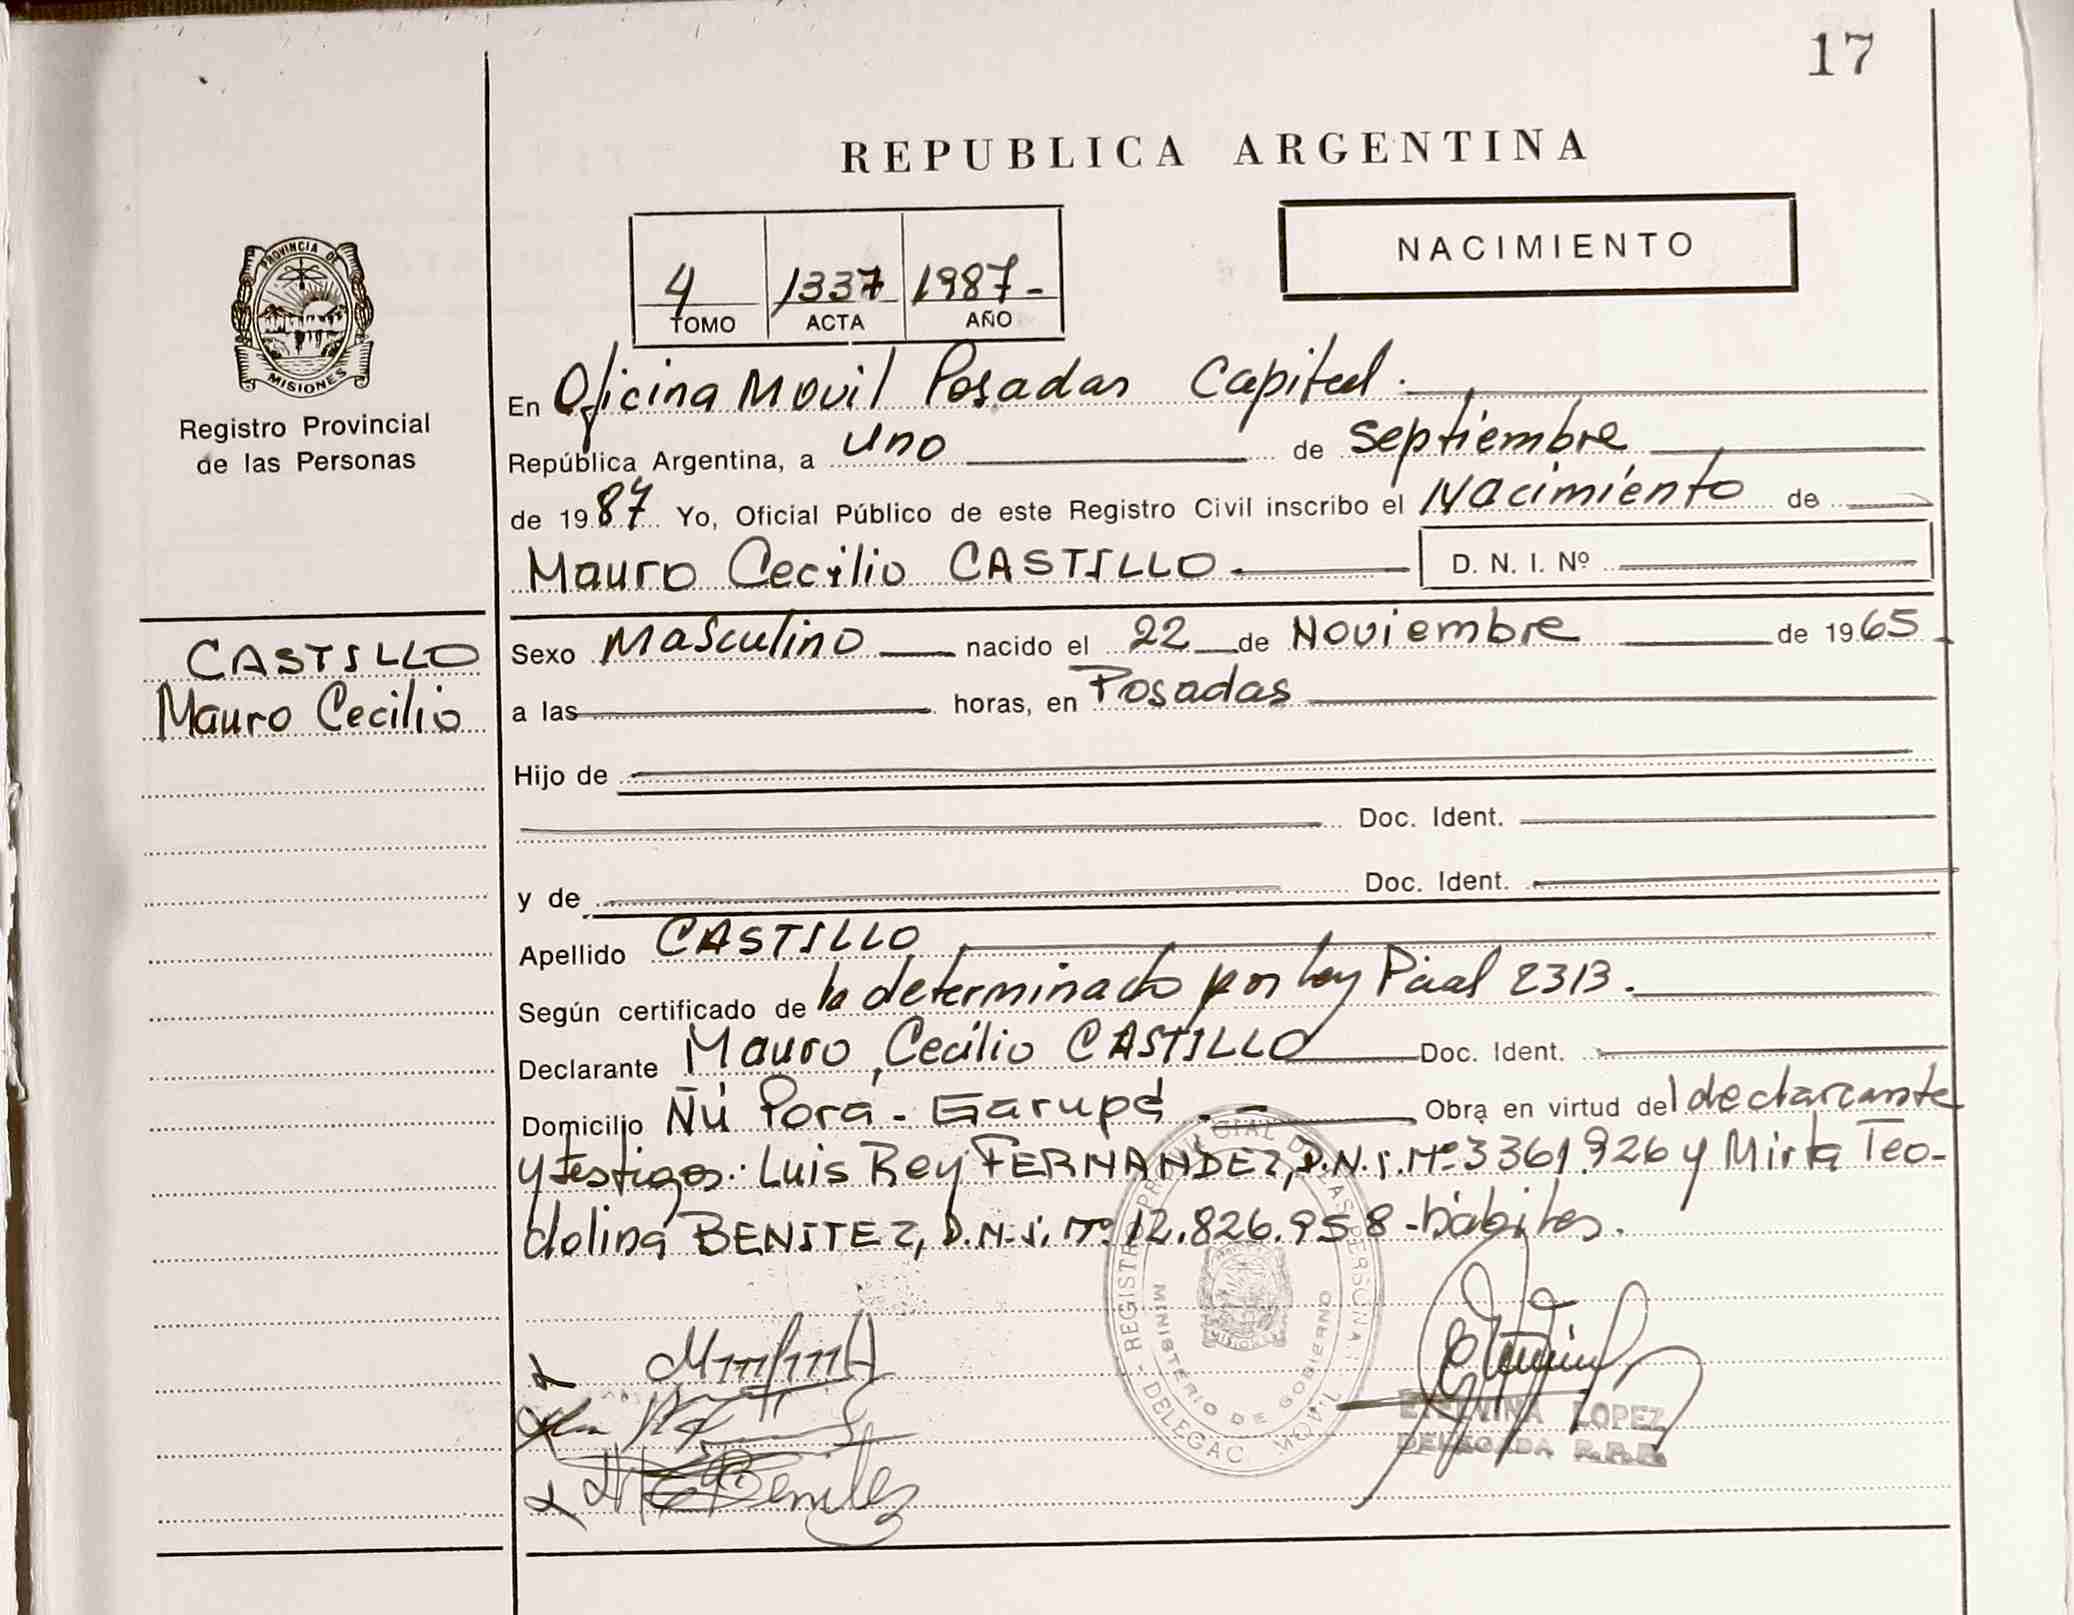 17
REPUBLICA ARGENTINA
NACIMIENTO
4 1337 1987-
TOMO ACTA AÑO
PROVINCIA DE
MISIONES
Registro Provincial
de las Personas
En Oficina Movil Posadas Capital.
República Argentina, a uno de septiembre
de 1987 Yo, Oficial Público de este Registro Civil inscribo el Nacimiento de
Mauro Cecilio CASTILLO D. N. I. Nº
CASTILLO
Mauro Cecilio
Sexo Masculino nacido el 22 de Noviembre de 1965
a las horas, en Posadas
Hijo de
Doc. Ident.
y de Doc. Ident.
Apellido CASTILLO
Según certificado de lo determinado por Ley Pcial 2313.
Declarante Mauro Cecilio CASTILLO Doc. Ident.
Domicilio Ñú Porá - Garupá.- Obra en virtud del declarante
y testigos: Luis Rey FERNANDEZ, D.N.I. Nº 3361.926 y Mirta Teo-
dolina BENITEZ, D.N.I. Nº 12.826.958 - hábiles.
REGISTRO PROVINCIAL DE LAS PERSONAS
MINISTERIO DE GOBIERNO
MISIONES
DELEGAC MOVIL
Benitez
LOPEZ
DELEGADA R.P.P.